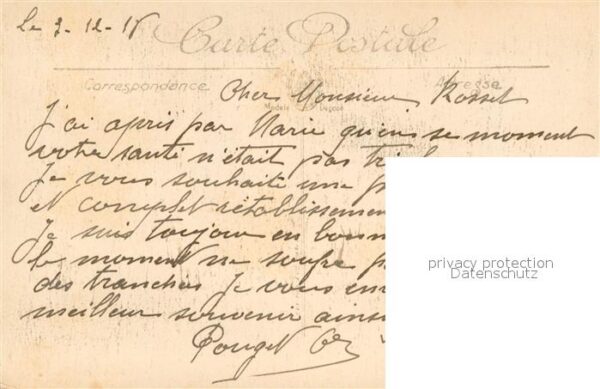 Le 3-12-15
Carte Postale
Correspondance Adresse
Cher Monsieur Rosset
J'ai apris par Marie qu'en se moment
votre santé n'était pas
Je vous souhaite une
et complet rétablissement
Je suis toujour en
le moment ne
des tranchés Je vous
meilleur souvenir ainsi
Pouget
privacy protection
Datenschutz